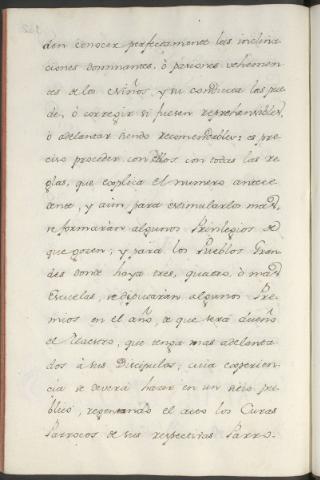 den conocer perfectamente las inclina
ciones dominantes, ó pasiones vehemen
tes de los Niños, y su conducta las pue
de, ó corregir si fuesen reprehensibles,
ó adelantar siendo recomendables; es pre
ciso proceder con ellos con todas las re
glas, que explica el numero antece
dente, y aun para estimularlos mas,
se formarán algunos Privilegios de
que gocen; y para los Pueblos Gran
des donde haya tres, quatro, ó mas
Escuelas, se disputarán algunos Pre
mios en el año, de que será dueño
el Maestro, que tenga mas adelanta
dos á sus Discipulos, cuia experien
cia se deverá hacer en un sitio pu
blico, regentando el acto los Curas
Parrocos de sus respectivas Parro-